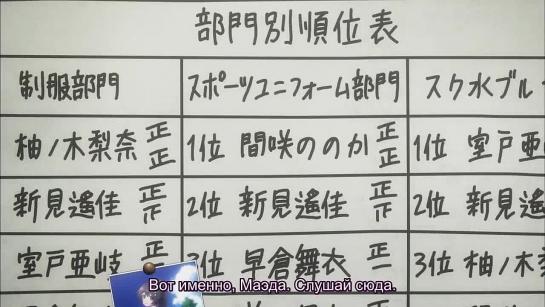 部門別順位表
制服部門 スポーツユニフォーム部門 スク水ブル
柚ノ木梨奈 正正 1位 間咲ののか 正正 1位 室戸亜
新見遙佳 正下 2位 新見遙佳 正下 2位 新見遙
室戸亜岐 正 3位 早倉舞衣 正一 3位 柚ノ木
Вот именно, Маэда. Слушай сюда.